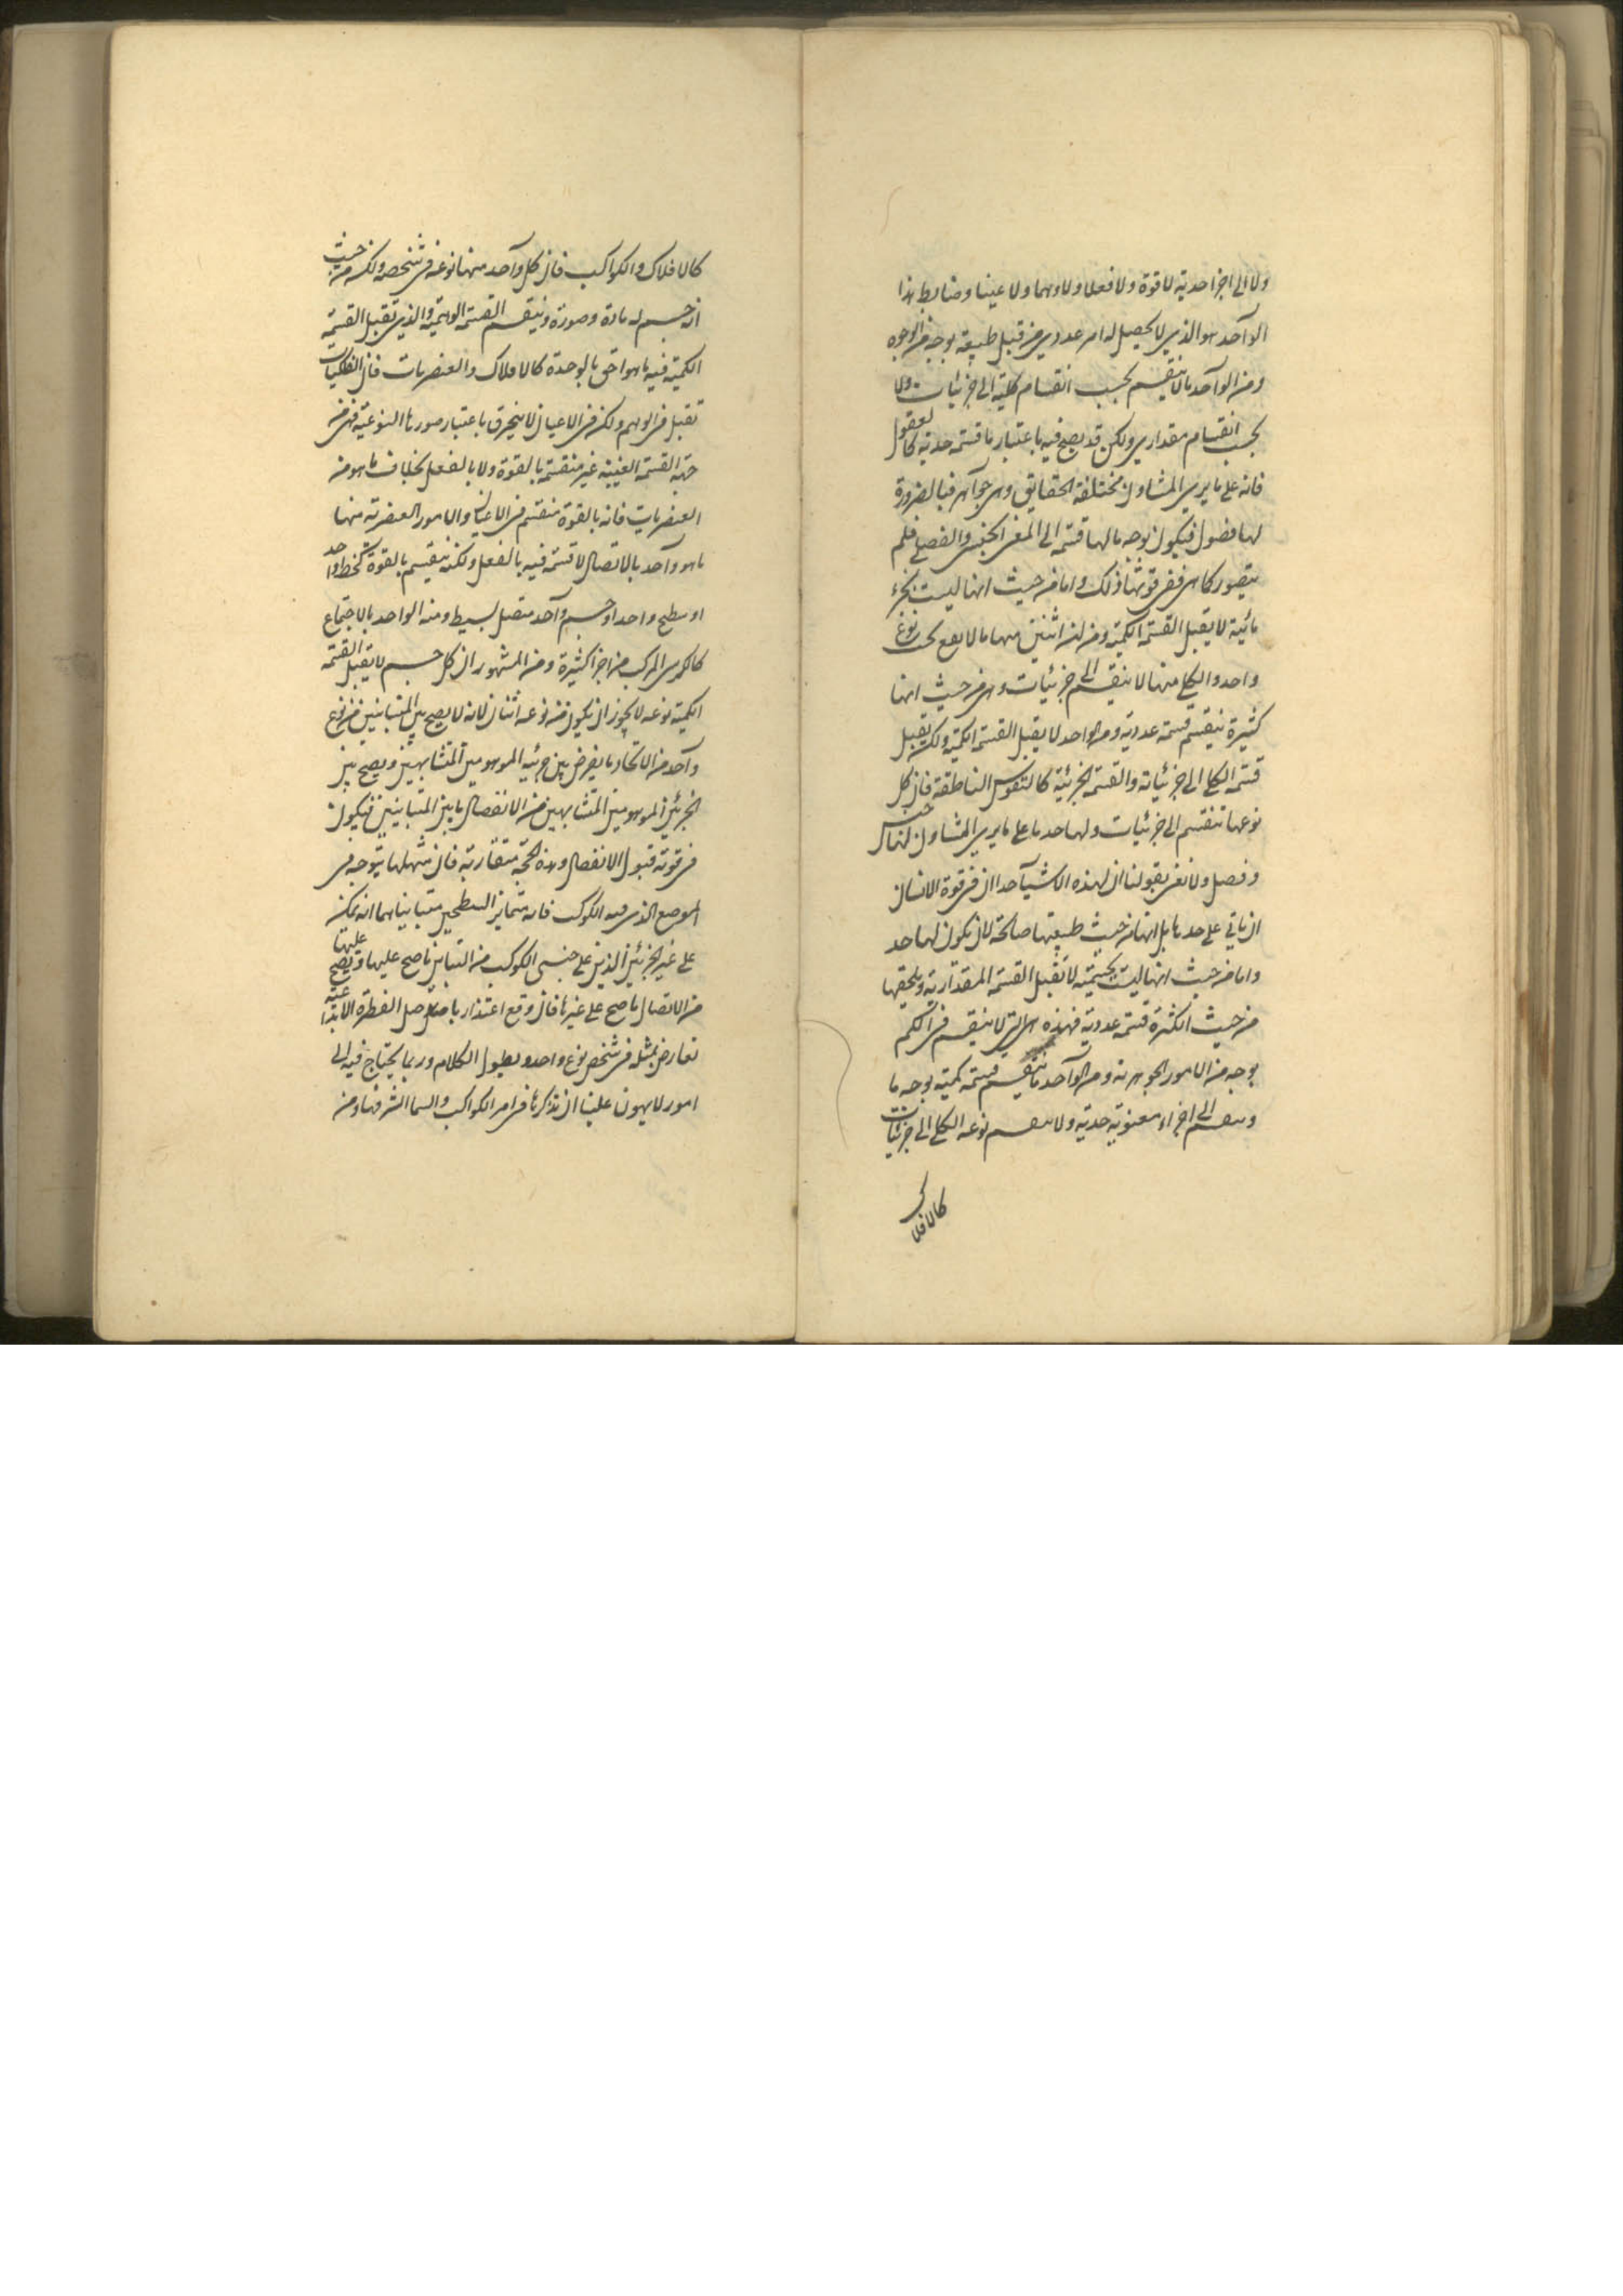 ولا الى اجزا حدية لا قوة ولا فعلا ولا وهما ولا عينا وضابط هذا
الواحد هو الذي لا يحصل له امر عددي من قبل طبيعة بوجه من الوجوه
ومن الواحد ما لا ينقسم بحسب انقسام كلية الى جزئيات ولا
بحسب انقسام مقداري ولكن قد يصح فيه باعتبار ما قسمة حدية كالعقول
فانه على ما يرى المشاون مختلفة الحقايق وهى جواهر فبالضرورة
لها فصول فيكون بوجه ما لها قسمة الى المعنى الجنسى والفصلى فلم
يتصور كما هى ففى قوتها ذلك واما من حيث انها ليست بجزء
مائية لا يقبل القسمة الكمية ومن ان اثنين منها ما لا يقع تحت نوع
واحد والكلي منها لا ينقسم الى جزئيات وهى من حيث انها
كثيرة ينقسم قسمة عددية ومن الواحد لا يقبل القسمة الكمية ولكن يقبل
قسمة الكلي الى جزئياته والقسمة الجزئية كالنفوس الناطقة فان كل
نوعها تنقسم الى جزئيات ولها حد ما على ما يرى المشاون ان لها جنس
وفصل ولا نعنى بقولنا ان لهذه الاشيآ حدا ان فى قوة الانسان
ان ياتي على حدها بل انها من حيث طبيعتها صالحة لان يكون لها حد
واما من حيث انها ليست بكمية لا تقبل القسمة المقدارية ويلحقها
من حيث الكثرة قسمة عددية فهذه هى التى لا ينقسم فى الكم
بوجه من الامور الجوهرية ومن الواحد ما ينقسم قسمة كمية بوجه ما
وينقسم الى اجزاء معنوية حدية ولا ينقسم نوعه الكلي الى جزئيات
كالافلاك
كالافلاك والكواكب فان كل واحد منها نوعه فى شخصه ولكن من حيث
انه جسم له مادة وصورة وينقسم القسمة الوهمية والذى يقبل القسمة
الكمية فيه ما هو احق بالوحدة كالافلاك والعنصريات فان الفلكيات
تقبل فى الوهم ولكن فى الاعيان لا ينخرق باعتبار صورها النوعية فهى من
جهة القسمة العينية غير منقسمة بالقوة ولا بالفعل بخلاف ما هو من
العنصريات فانه بالقوة منقسم فى الاعيان والامور العنصرية منها
ما هو واحد بالاتصال لا قسمة فيه بالفعل ولكنه ينقسم بالقوة كخط واحد
او سطح واحد او جسم واحد متصل بسيط ومنه الواحد بالاجتماع
كالكرسى المركب من اجزا كثيرة ومن المشهور ان كل جسم لا يقبل القسمة
الكمية نوعه لا يجوز ان يكون من نوعه اثنان لانه لا يصح بين المتباينين من نوع
واحد من الاتحاد ما يفرض بين جزئيه الموهومين المتشابهين ويصح بين
الجزئين الموهومين المتشابهين من الانفصال ما بين المتباينين فيكون
فى قوته قبول الانفصال وهذه الحجة متقاربة فان مثلها يتوجه فى
الموضع الذى فيه الكوكب فانه متمايز السطحين متباينا هما انه يمكن
على غير الجزئين الذين على جنبتى الكوكب من التباين ما صح عليها ويصح عليها
من الاتصال ما صح على غيرها فان وقع اعتذار بما حصل الفطرة الابتداعية
تعارض بمثله فى شخص نوع واحد ويطول الكلام وربما يحتاج فيه الى
امور لا يهون علينا ان نذكرها فى امر الكواكب والسما الشرفنا ومن